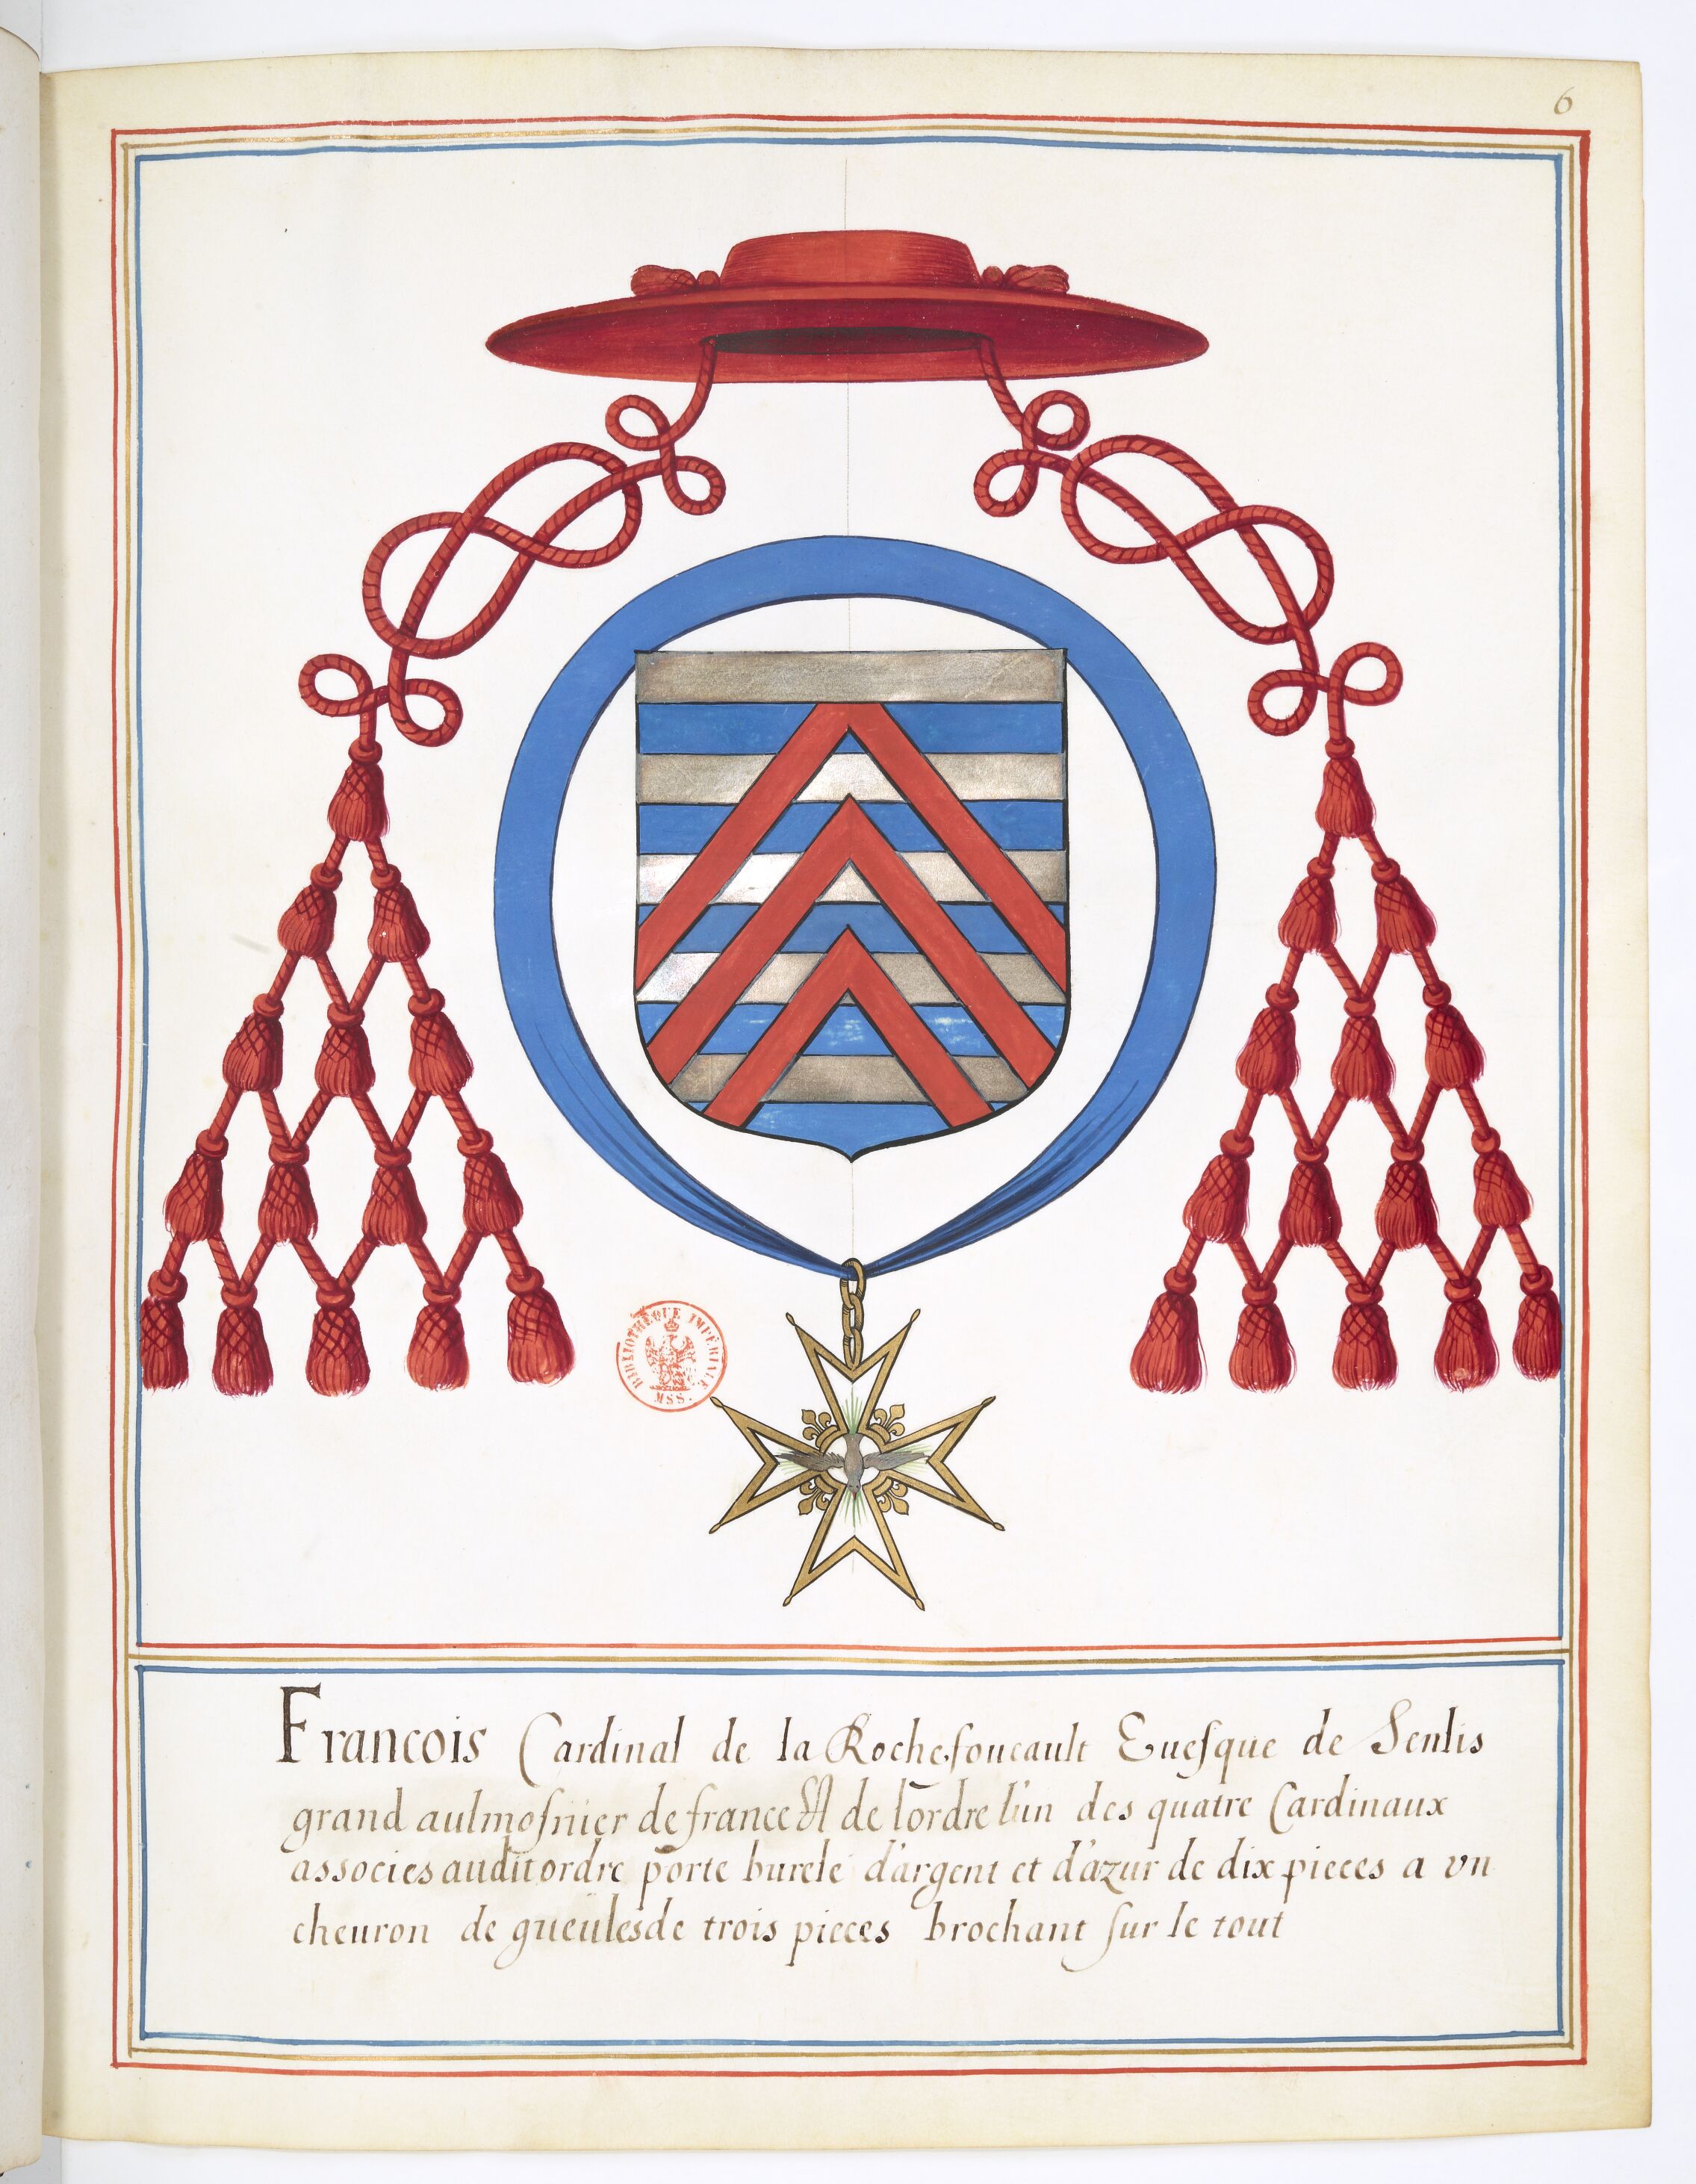 6
BIBLIOTHÈQUE IMPÉRIALE
MSS.
Francois Cardinal de la Rochefoucault Euesque de Senlis
grand aulmosnier de france Et de lordre l'un des quatre Cardinaux
associes audit ordre porte burelé d'argent et d'azur de dix pieces a vn
cheuron de gueules de trois pieces brochant sur le tout